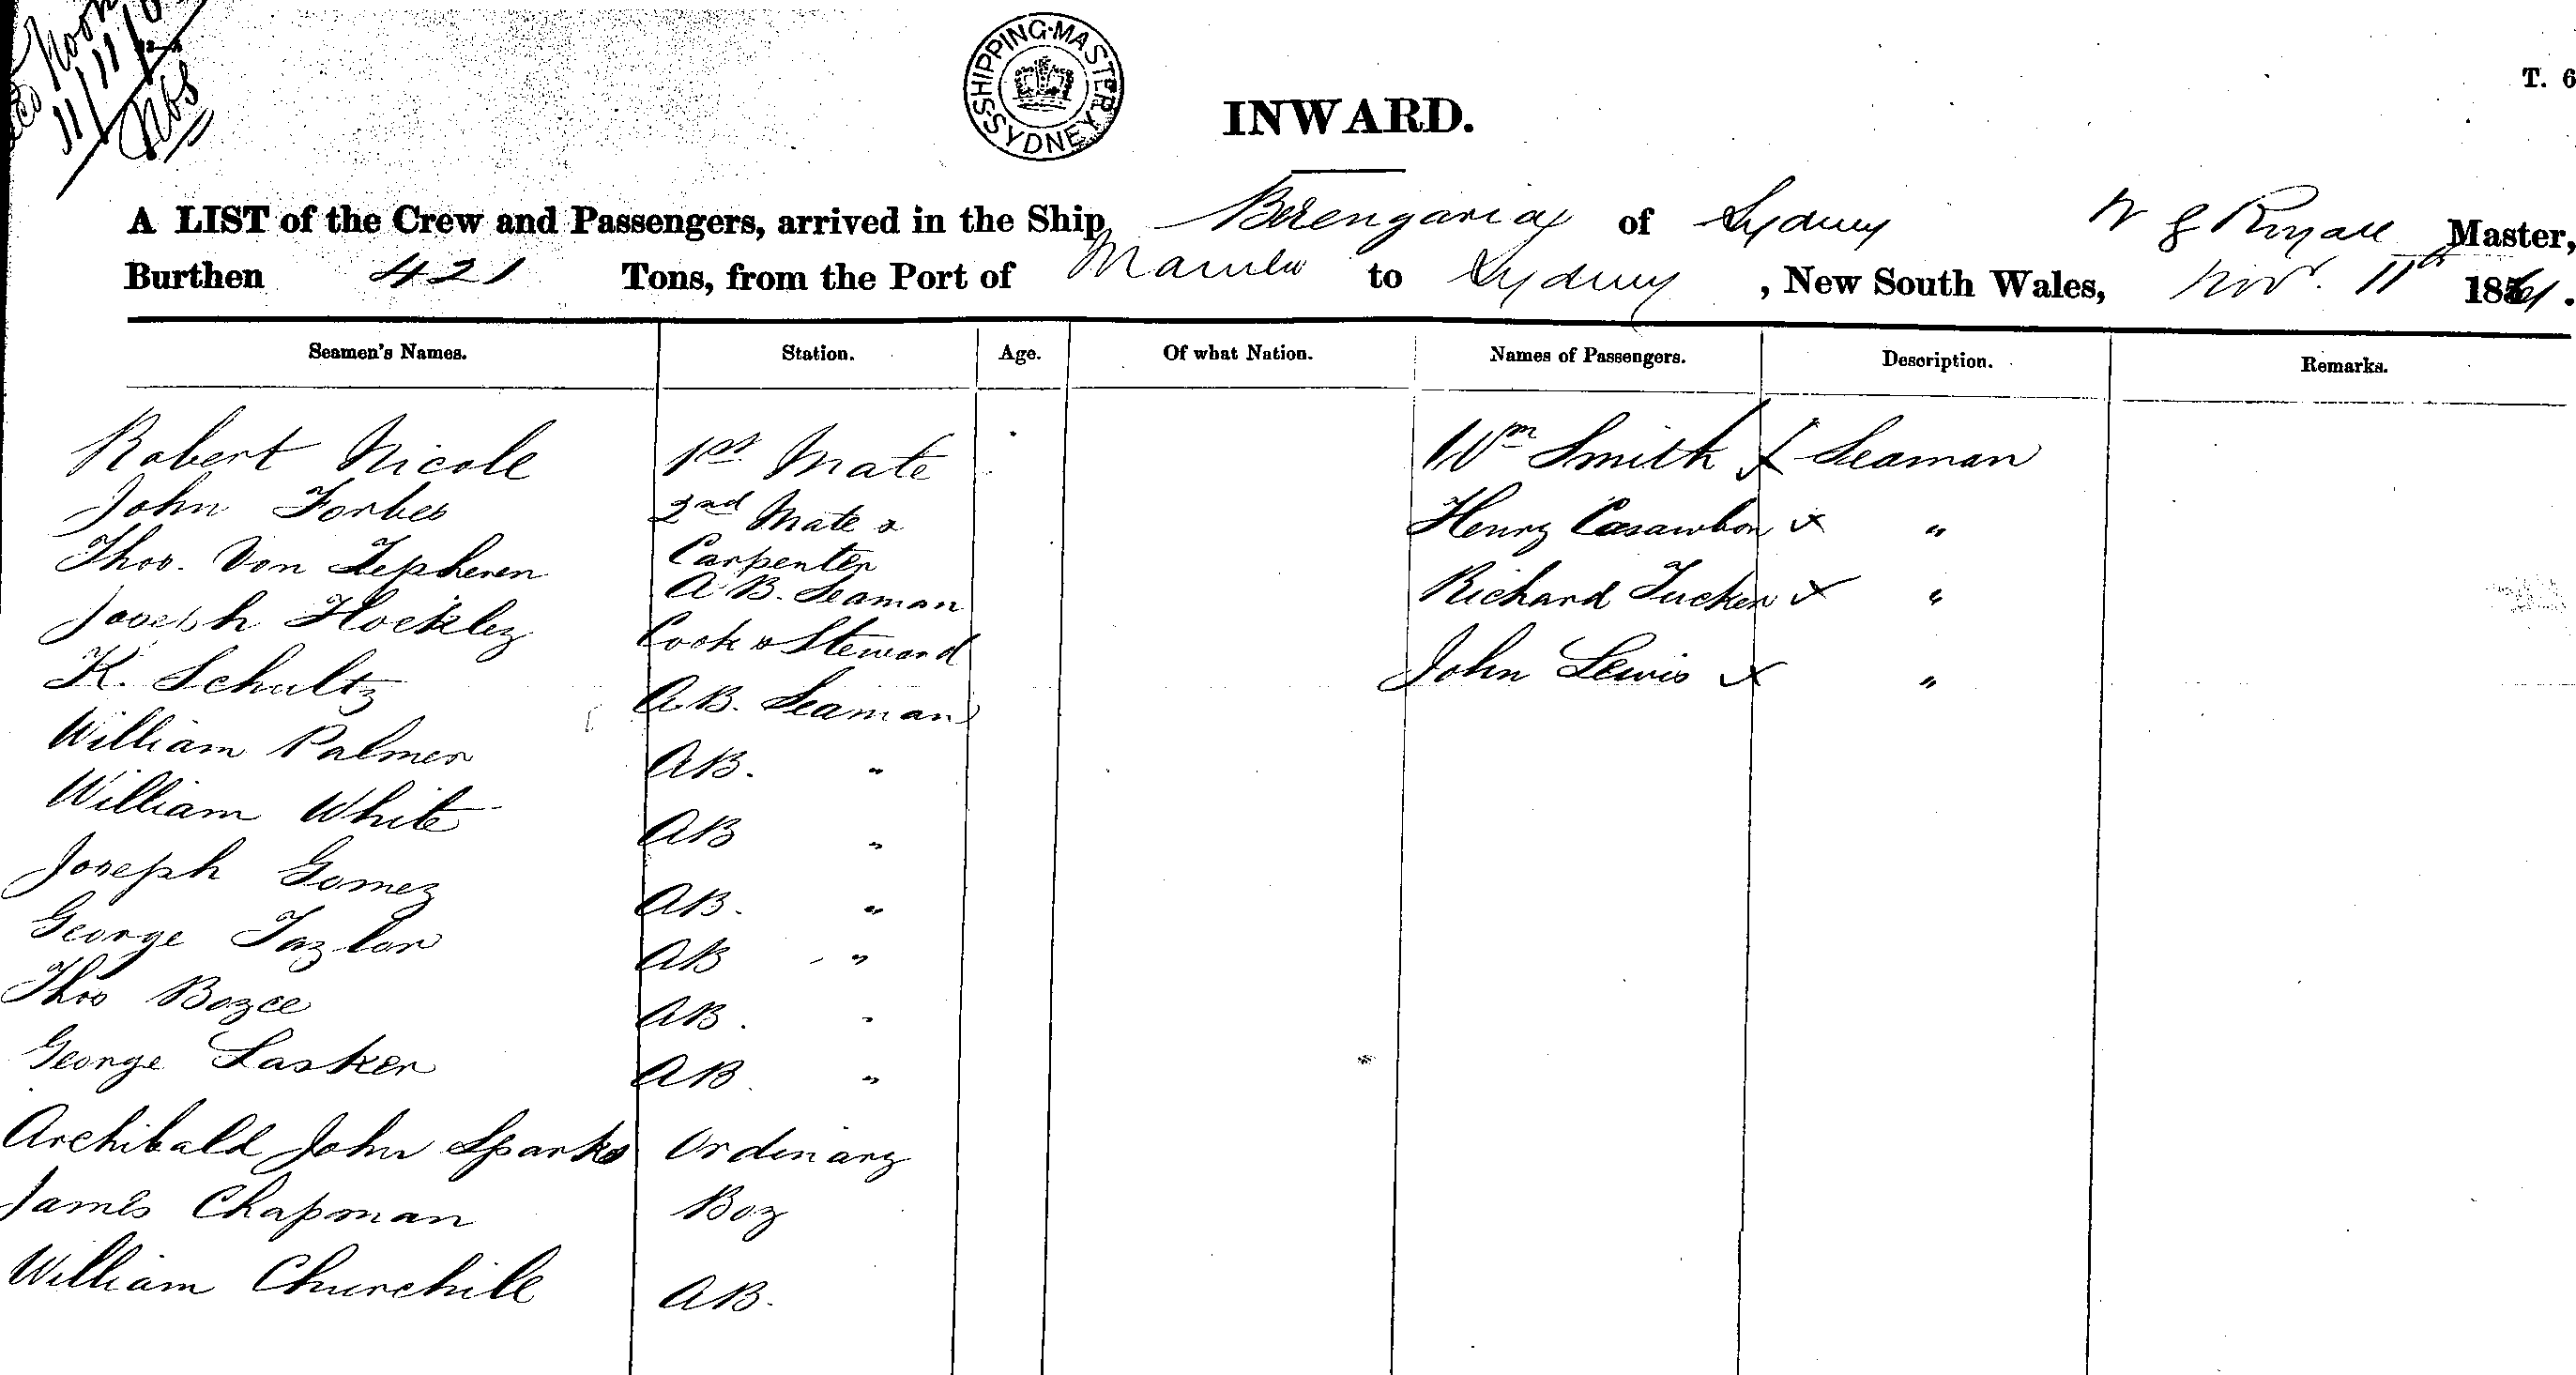 11/11/6
SHIPPING MASTER SYDNEY
INWARD.
T. 6
A LIST of the Crew and Passengers, arrived in the Ship Berengaria of Sydney W G Royall Master,
Burthen 421 Tons, from the Port of Manila to Sydney, New South Wales, Novr. 11th 1861.
Seamen's Names. Station. Age. Of what Nation. Names of Passengers. Description. Remarks.
Robert Nicole 1st Mate Wm Smith x Seaman
John Forbes 2nd Mate & Carpenter Henry Casawbon x "
Thos. Von Zepheren A B. Seaman Richard Tucker x "
Joseph Hockley Cook & Steward John Lewis x "
K. Schultz A.B. Seaman
William Palmer AB. "
William White AB "
Joseph Gomez AB. "
George Taylor AB "
Thos Boyce AB. "
George Lasker AB "
Archibald John Sparks Ordinary
James Chapman Boy
William Churchill AB.